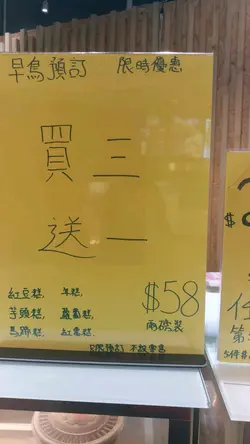 早鳥預訂 限時優惠
買三
送一
紅豆糕 年糕
芋頭糕 蘿蔔糕 $58
馬蹄糕 紅棗糕 兩磅裝
只限預訂 不設零售
$
第